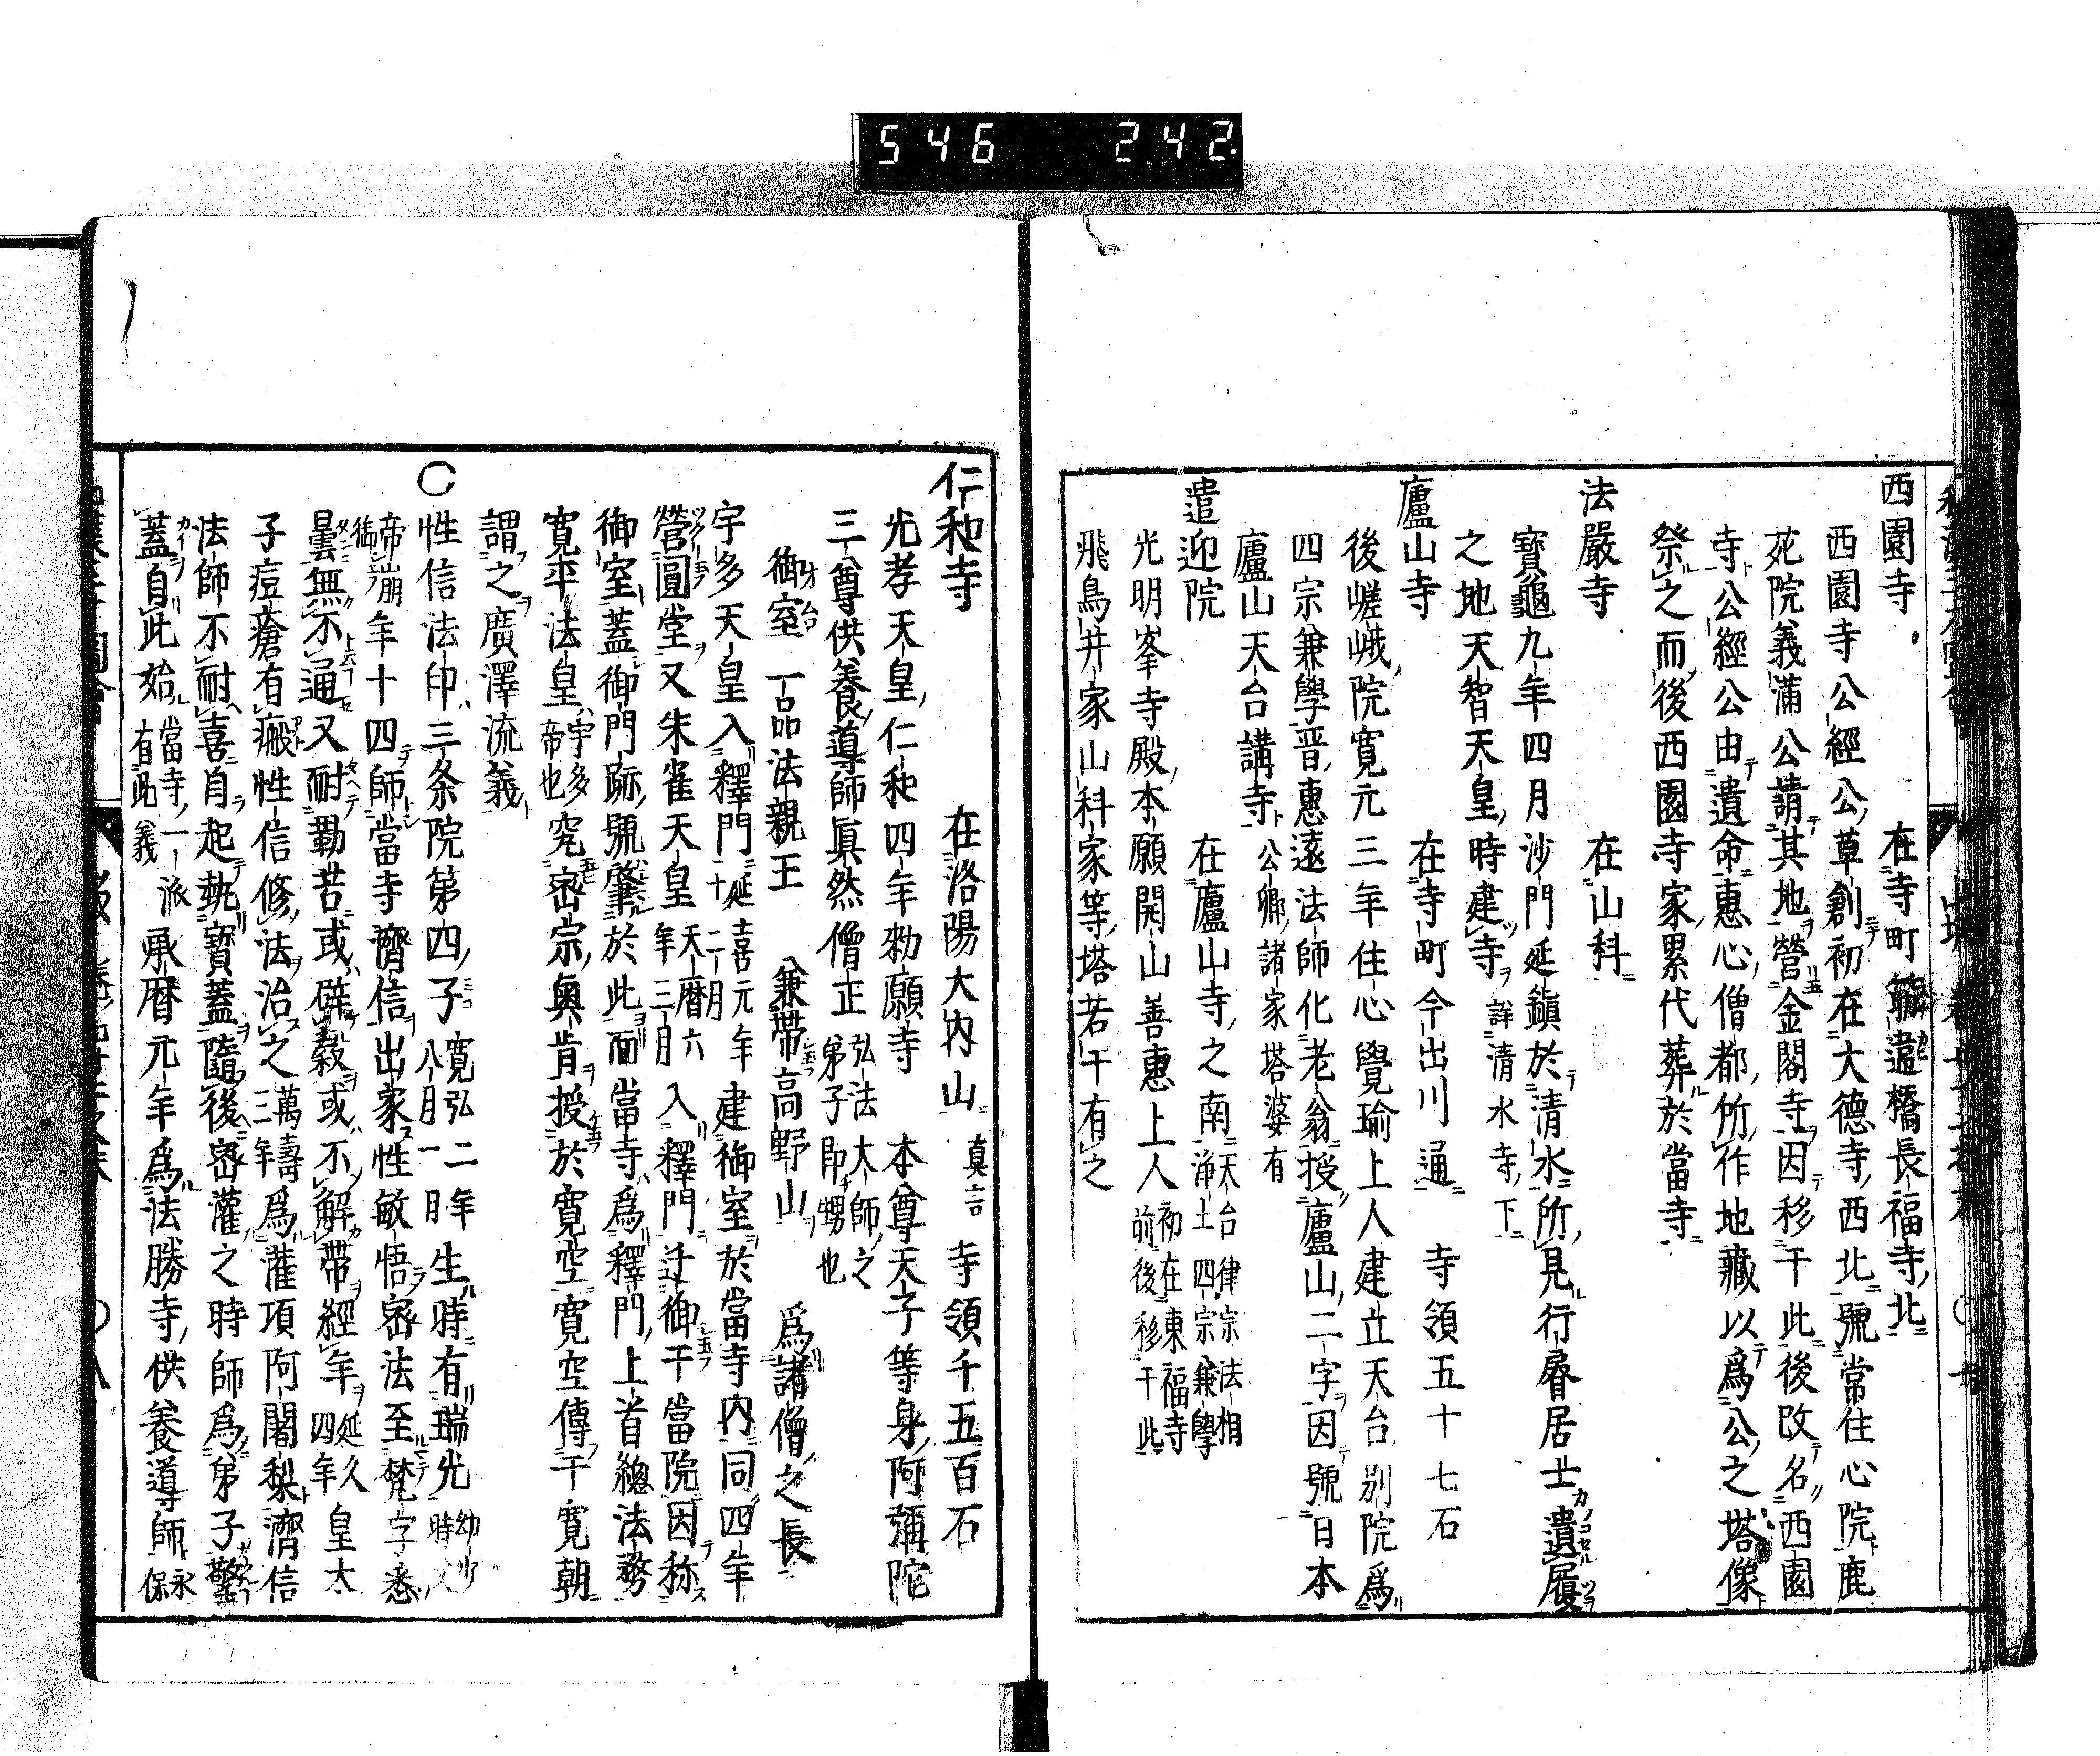 546 242
西園寺 在寺町鞍遣橋長福寺北
西園寺公經公草創初在大德寺西北號常住心院鹿
苑院義滿公請其地營金閣寺因移于此後改名西園
寺公經公由遺命惠心僧都所作地藏以爲公之塔像
祭之而後西園寺家累代葬於當寺
法嚴寺 在山科
寳龜九年四月沙門延鎮於清水所見行睿居士遺履
之地天智天皇時建寺詳清水寺下
廬山寺 在寺町今出川通 寺領五十七石
後嵯峨院寛元三年住心覺瑜上人建立天台別院爲
四宗兼學晋惠遠法師化老翁授廬山二字因號日本
廬山天台講寺公卿諸家塔婆有
遣迎院 在廬山寺之南天台律宗法相浄土四宗兼學
光明峯寺殿本願開山善惠上人初在東福寺前後移于此
飛鳥井家山科家等塔若干有之
仁和寺 在洛陽大内山 真言 寺領千五百石
光孝天皇仁和四年勅願寺 本尊天子等身阿彌陀
三尊供養導師眞然僧正弘法大師之弟子即甥也
御室一品法親王 兼帯高野山 爲諸僧之長
宇多天皇入釋門延喜元年十二月建御室於當寺内同四年
營圓堂又朱雀天皇天暦六年三月入釋門迁御于當院因称
御室蓋御門跡號肇於此而當寺爲釋門上首總法務
寛平法皇宇多帝也究密宗奥肯授於寛空寛空傳于寛朝
謂之廣澤流義
○性信法印三条院第四子寛弘二年八月一日生時有瑞光幼少時
帝崩年十四師當寺濟信出家性敏悟密法至梵字悉
曇無不通又耐勤苦或辟穀或不解帯經年延久四年皇太
子痘瘡有瘢性信修法治之萬壽三年爲灌頂阿闍梨濟信
法師不耐喜自起執寳蓋隨後密灌之時師爲弟子擎
蓋自此始當寺一派有此義承暦元年爲法勝寺供養導師永保